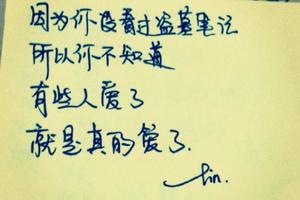 因为你没看过盗墓笔记
所以你不知道
有些人爱了
就是真的爱了.
lin.